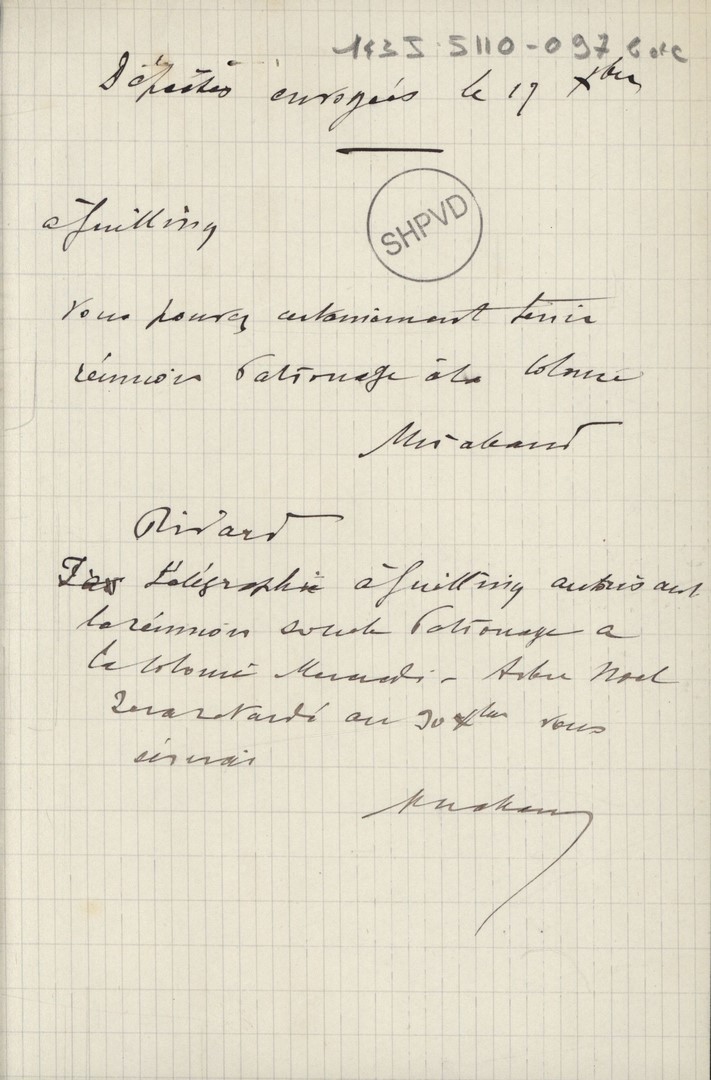 1435 5110-097
Dépêches envoyées le 17 Xbre
SHPVD
à Guilling
Vous pouvez certainement tenir
réunion Patronage à la Colonie
Mirabaud
Risard
J'ai télégraphié à Guilling autorisant
la réunion Patronage a
la Colonie Mercredi - Arbre Noel
sera retardé au 30 Xbre vous
écrirai
Mirabaud